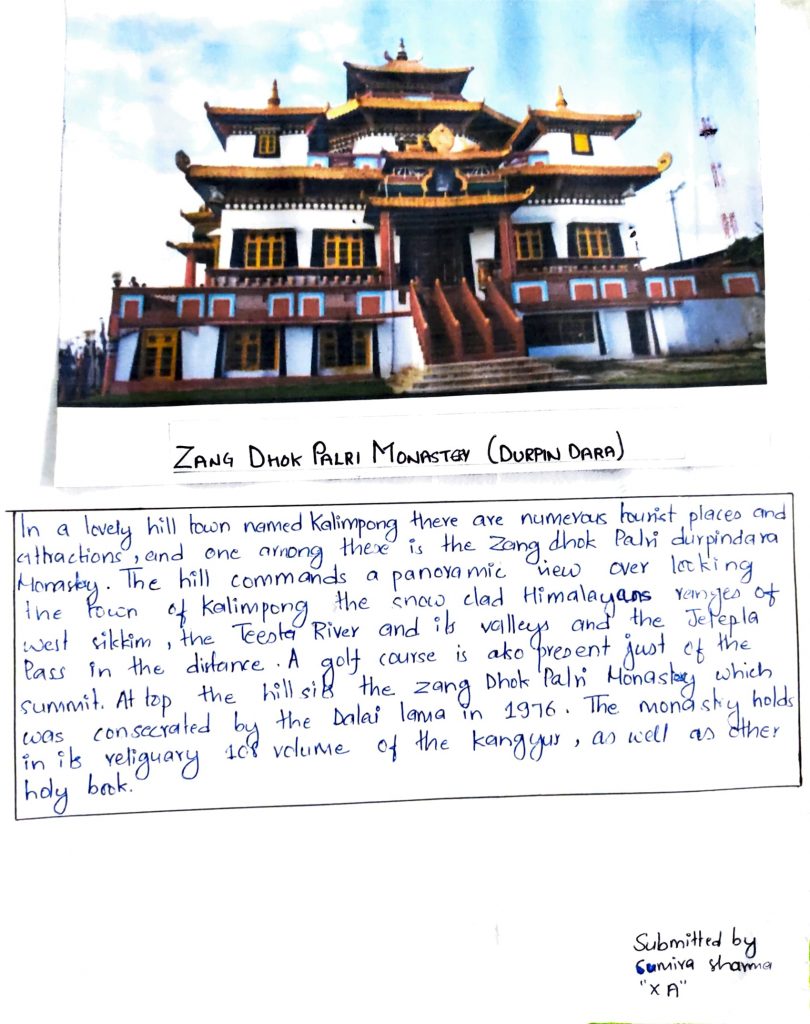 ZANG DHOK PALRI MONASTERY (DURPIN DARA)
In a lovely hill town named Kalimpong there are numerous tourist places and
attractions, and one among these is the Zang dhok Palri durpindara
Monastry. The hill commands a panoramic view over looking
the town of Kalimpong the snow clad Himalayans ranges of
west sikkim, the Teesta River and its valleys and the Jelepla
Pass in the distance. A golf course is also present just of the
summit. At top the hill sits the zang Dhok Palri Monastry which
was consecrated by the Dalai lama in 1976. The monastry holds
in its religuary 108 volume of the Kangyur, as well as other
holy book.
Submitted by
Sumira sharma
"X A"